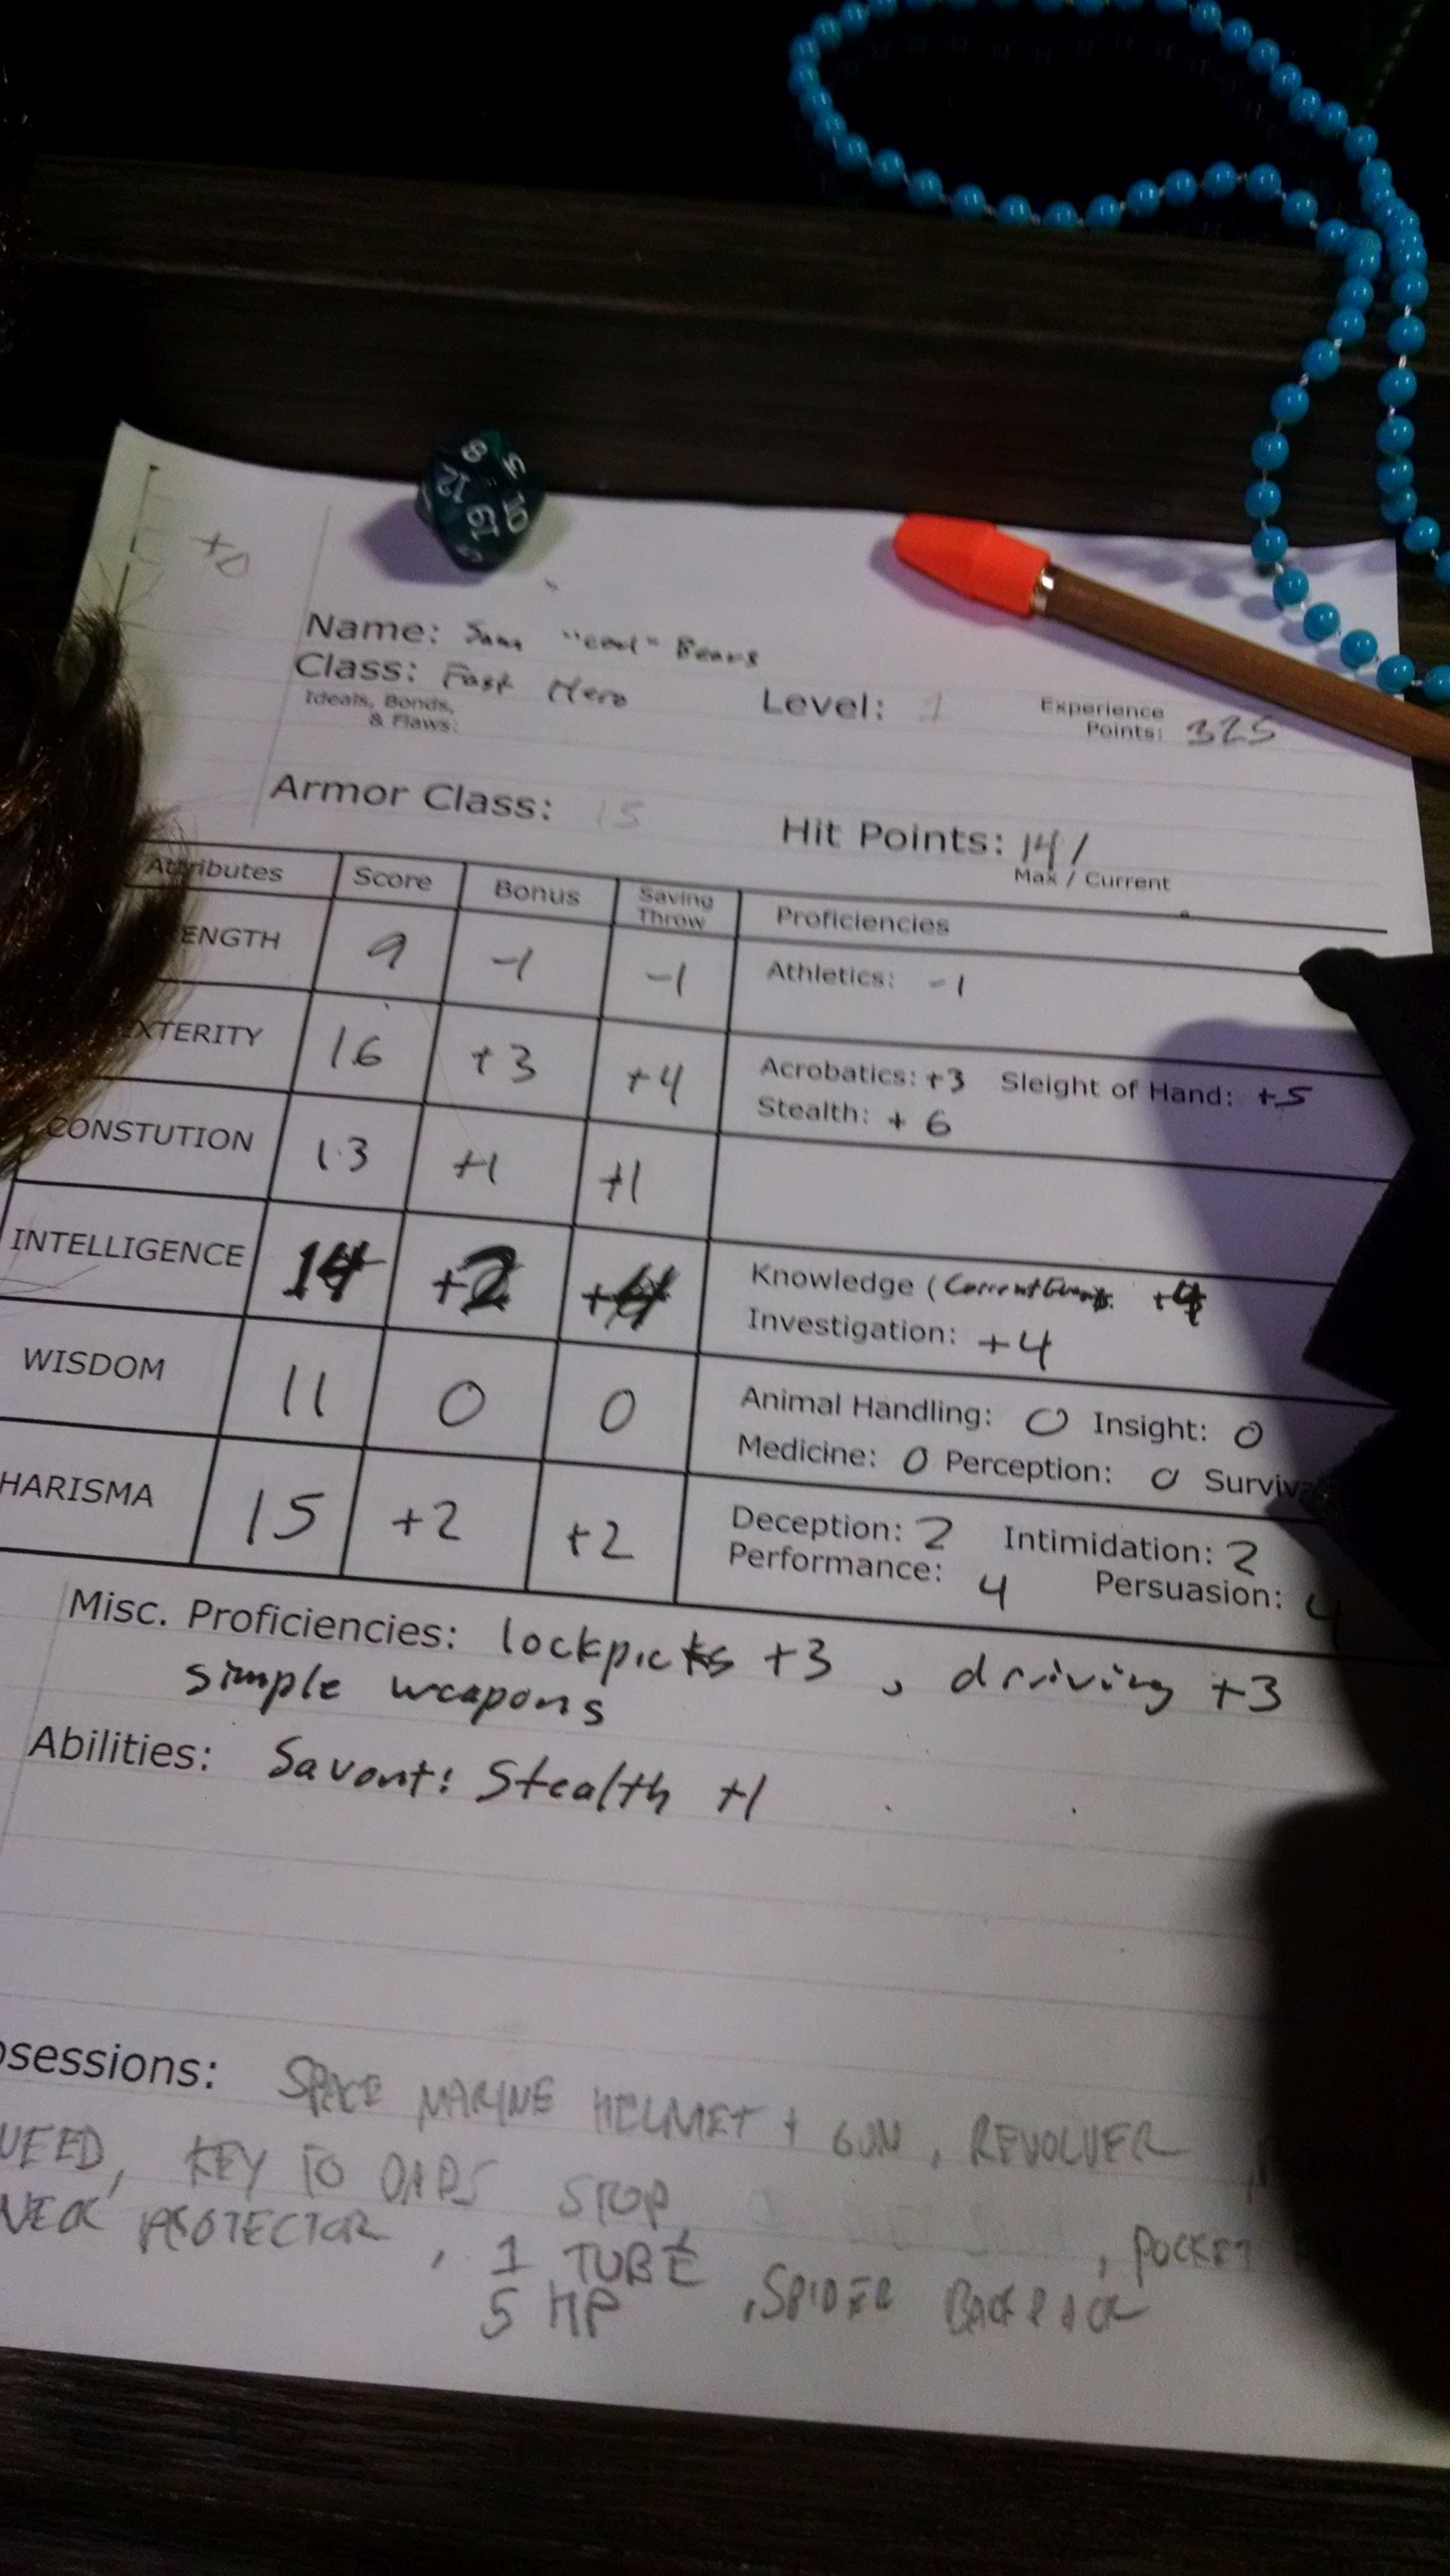 +0
8 5
12 19 10
Name: Sam "cool" Beans
Class: Fast Hero
Ideals, Bonds,
& Flaws:
Level: 1
Experience
Points: 325
Armor Class: 15
Hit Points: 14 /
Max / Current
Attributes Score Bonus Saving Throw Proficiencies
ENGTH 9 -1 -1 Athletics: -1
XTERITY 16 +3 +4 Acrobatics: +3 Sleight of Hand: +5
Stealth: +6
CONSTUTION 13 +1 +1
INTELLIGENCE 14 +2 +4 Knowledge (Current Events +4
Investigation: +4
WISDOM 11 0 0 Animal Handling: 0 Insight: 0
Medicine: 0 Perception: 0 Surviv
HARISMA 15 +2 +2 Deception: 2 Intimidation: 2
Performance: 4 Persuasion: 4
Misc. Proficiencies: lockpicks +3, driving +3
simple weapons
Abilities: Savont: Stealth +1
sessions: SPACE MARINE HELMET + GUN, REVOLVER
WEED, KEY TO STOP
NECK PROTECTOR, 1 TUBE, POCKET
5 HP, SPIDER BACKPACK